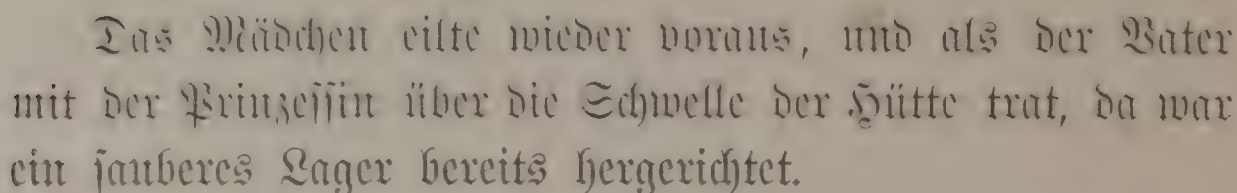 Das Mädchen eilte wieder voraus, und als der Vater
mit der Prinzessin über die Schwelle der Hütte trat, da war
ein sauberes Lager bereits hergerichtet.